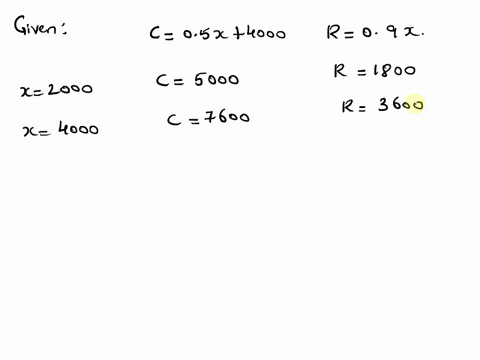 Given: C = 0.5x + 4000 R = 0.9x.
x = 2000 C = 5000 R = 1800
x = 4000 C = 7600 R = 3600